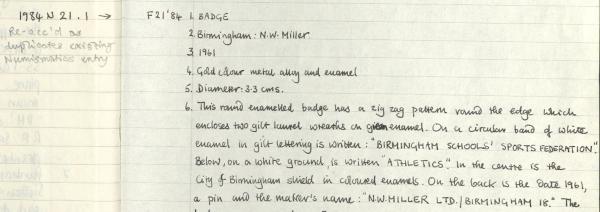 1984 N 21 . 1 →
Re-acc'd as
duplicates existing
Numismatics entry
F21'84 1. BADGE
2. Birmingham : N.W. Miller
3. 1961
4. Gold colour metal alloy and enamel
5. Diameter: 3.3 cms.
6. This round enamelled badge has a zig zag pattern round the edge which
encloses two gilt laurel wreaths on enamel. On a circular band of white
enamel in gilt lettering is written: "BIRMINGHAM SCHOOLS' SPORTS FEDERATION".
Below, on a white ground, is written "ATHLETICS". In the centre is the
City of Birmingham shield in coloured enamels. On the back is the date 1961,
a pin and the maker's name: "N.W. MILLER LTD./BIRMINGHAM 18." The